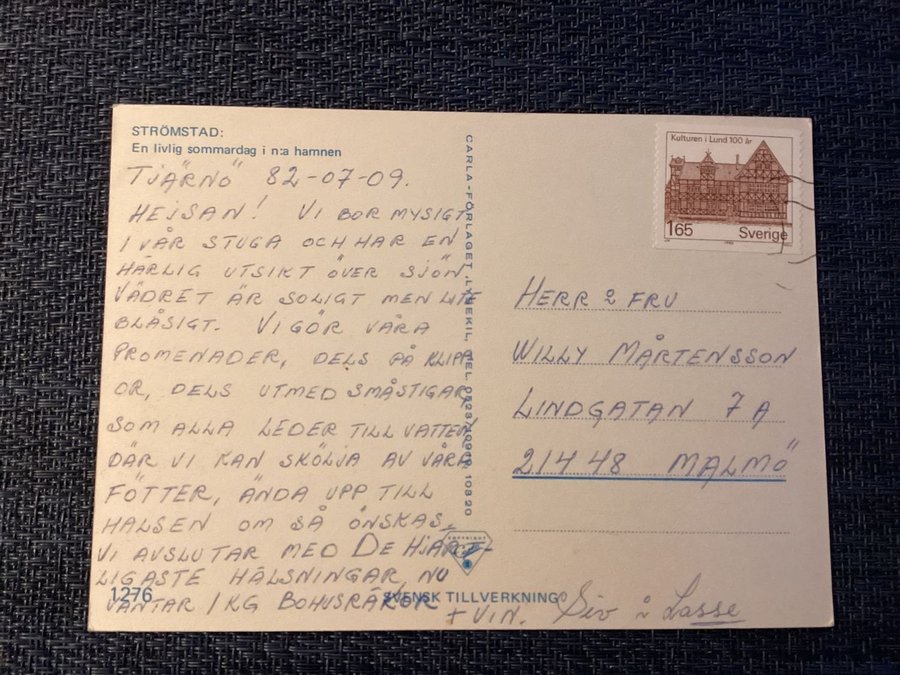 STRÖMSTAD:
En livlig sommardag i n:a hamnen
TJÄRNÖ 82-07-09.
HEJSAN! VI BOR MYSIGT
I VÅR STUGA OCH HAR EN
HÄRLIG UTSIKT ÖVER SJÖN
VÄDRET ÄR SOLIGT MEN LITE
BLÅSIGT. VI GÖR VÅRA
PROMENADER, DELS PÅ KLIPP
OR, DELS UTMED SMÅSTIGAR,
SOM ALLA LEDER TILL VATTEN,
DÄR VI KAN SKÖLJA AV VÅRA
FÖTTER, ÄNDA UPP TILL
HALSEN OM SÅ ÖNSKAS.
VI AVSLUTAR MED DE HJÄRT-
LIGASTE HÄLSNINGAR, NU
VÄNTAR 1 KG BOHUSRÄKOR
+ VIN. Siv å Lasse
1276
SVENSK TILLVERKNING
CARLA-FÖRLAGET, LYSEKIL, TEL. 0523/
COPYRIGHT
Kulturen i Lund 100 år
165 Sverige
HERR & FRU
WILLY MÅRTENSSON
LINDGATAN 7A
214 48 MALMÖ